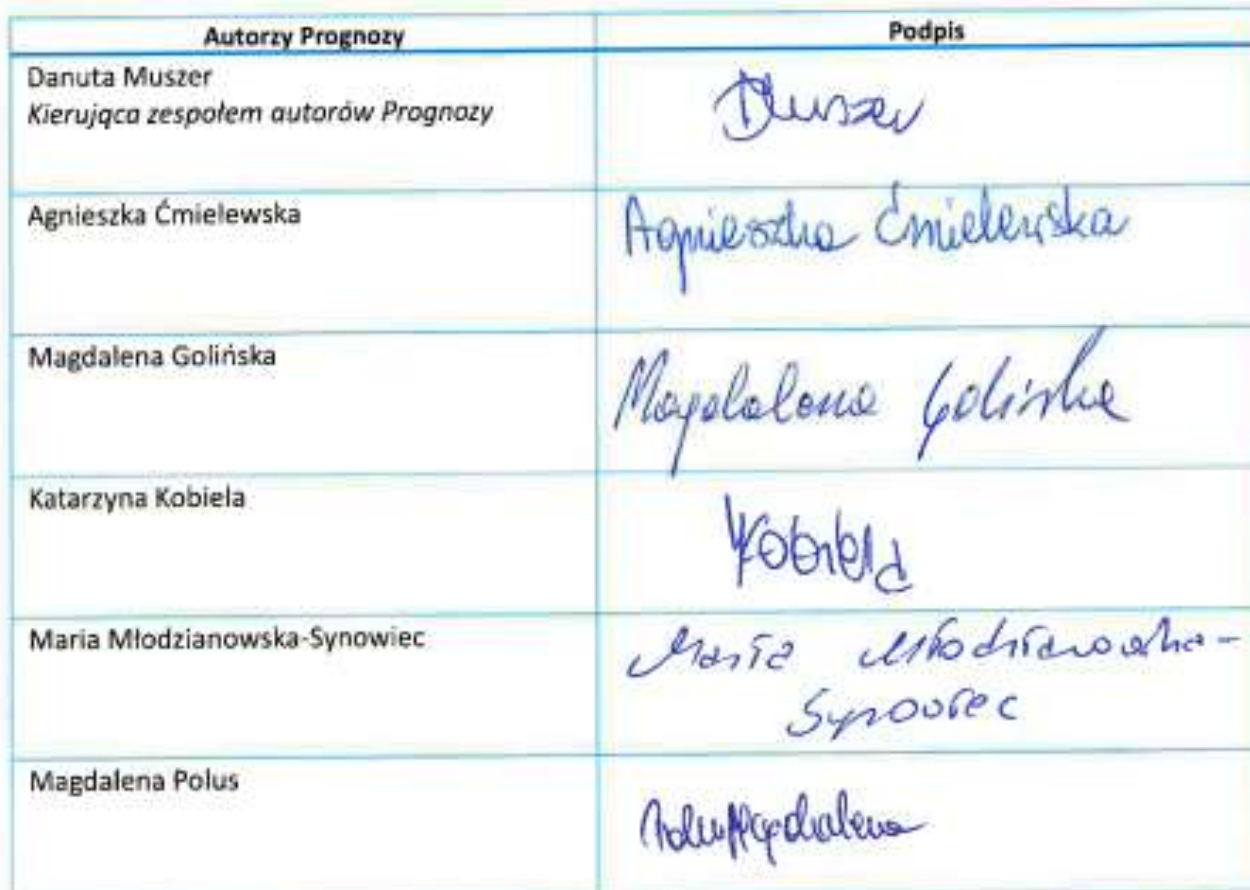 Autorzy Prognozy Podpis
Danuta Muszer
Kierująca zespołem autorów Prognozy
DMuszer
Agnieszka Ćmielewska Agnieszka Ćmielewska
Magdalena Golińska Magdalena Golińska
Katarzyna Kobiela KKobiela
Maria Młodzianowska-Synowiec Maria Młodzianowska-
Synowiec
Magdalena Polus Polus Magdalena